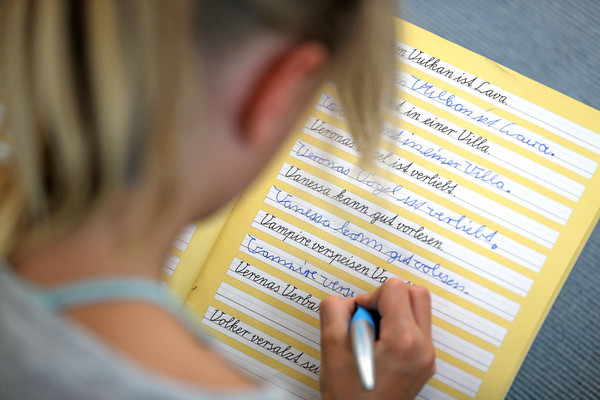 m Vulkan ist Lava.
Vulkan ist Lava.
t in einer Villa.
t in einer Villa.
Veronas el ist verliebt.
Veronas Vogel ist verliebt.
Vanessa kann gut vorlesen.
Vanessa kann gut volesen.
Vampire verspeisen Va
Vampire versp
Verenas Verban
Volker versalzt sei